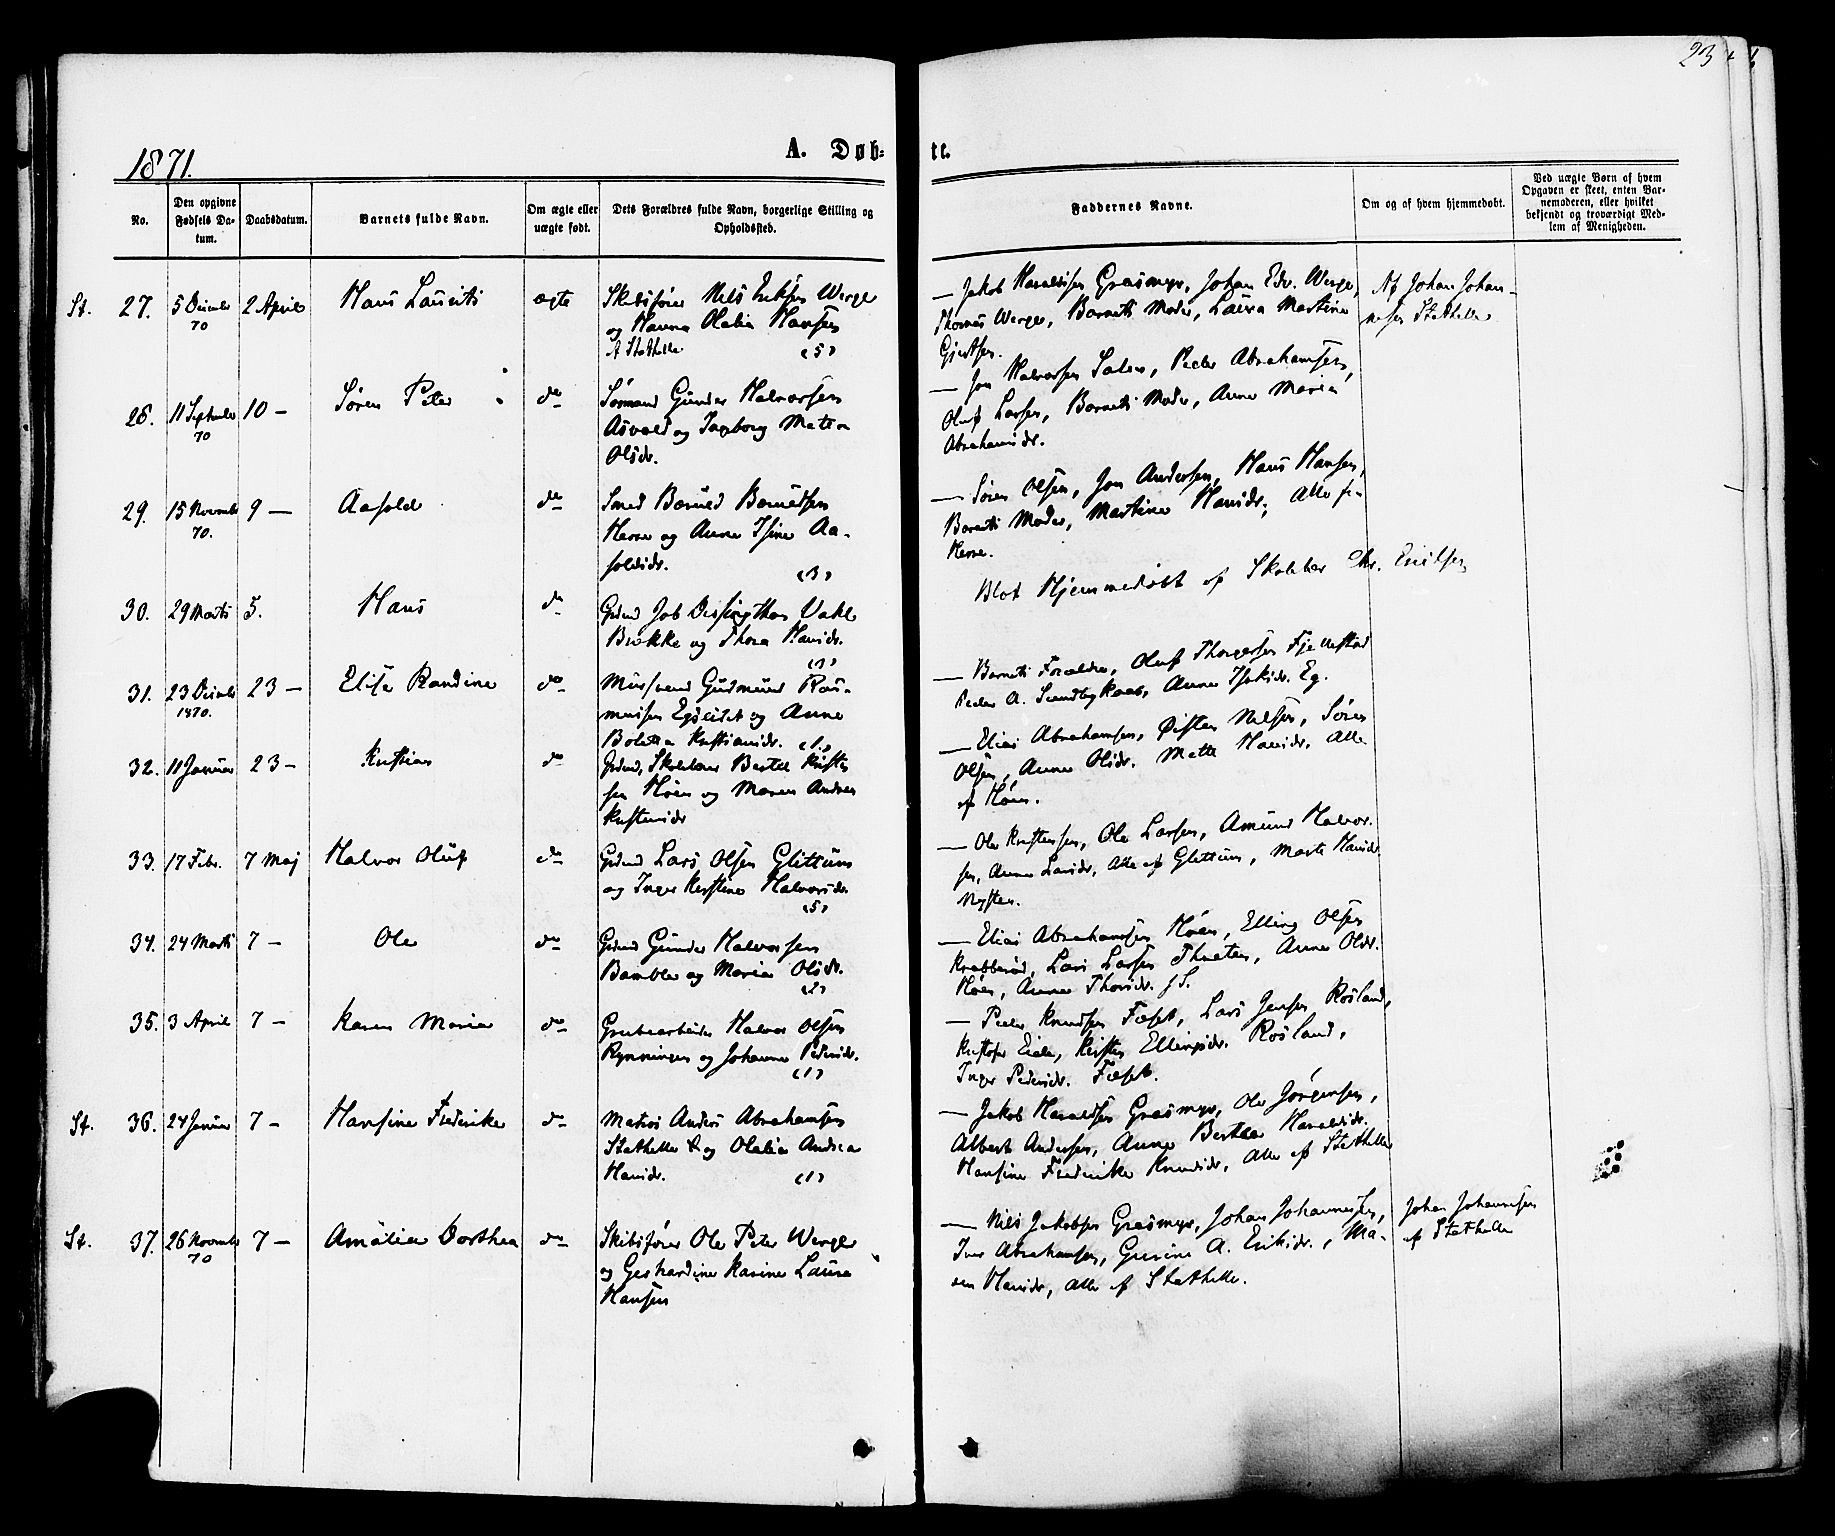 23
1871.
A. Døb-
te.
No.
Den opgivne Fødsels Da-
tum.
Daabsdatum.
Barnets fulde Navn.
Om ægte eller
uægte født.
Dets Forældres fulde Navn, borgerlige Stilling og
Opholdssted.
Faddernes Navne.
Om og af hvem hjemmedøbt.
Ved uægte Børn af hvem
Opgaven er skeet, enten Bar-
nemoderen, eller hvilket
bekjendt og troværdigt Med-
lem af Menigheden.
St. 27. 5 Decembr 2 April Hans Laurits ægte Skibsfører Nils Eriksen Werge
70 og Hanna Olalia Hansen
Af Stathelle (5)
— Jakob Haraldsen Grasmyr, Johan Edv. Werge,
Thomas Werge, Barnets Moder, Laura Martine
Gjertsen.
Af Johan Johan-
nesen Stathelle
28. 11 Septembr 10 — Søren Peter do Sømand Gunder Halvorsen
70 Asvald og Ingborg Mette
Olsdr.
— Jon Halvorsen Salen, Peder Abrahamsen,
Oluf Larsen, Barnets Moder, Anne Maria
Abrahamsdr.
29. 15 Novembr 9 — Aasold do Smed Baruld Baruldsen
70. Herre og Anne Isine Aa-
soldsdr. (3)
— Søren Olsen, Jon Andersen, Hans Hansen,
Barnets Moder, Martine Hansdr, Alle fr
Herre.
30. 29 Marts 5. Hans do Grdmd Job Dissingthon Vahl
Brekke og Thora Hansdr.
(3)
Blot Hjemmedøbt af Skolelær Chr. Eriksen
31. 23 Decembr 23 — Elise Randine do Gudmund Ras-
1870. mussen Egsletet og Anne
Bolette Kristiansdr. (1.)
— Barnets Forældre, Oluf Thorgersen Fjellestad
Peder A. Sundbykaas, Anne Isaksdr. Eg.
32. 11 Januar 23 — Kristian do Grdmd, Skolelærer Bertel Kristen
sen Høen og Maren Andrea
Kristensdr
— Elias Abrahamsen, Østen Nilsen, Søren
Olsen, Anne Olsdr. Mette Hansdr. Alle
af Høen.
33. 17 Febr. 7 Maj Halvor Oluf do Grdmd Lars Olsen Glittum
og Inger Kirstine Halvorsdr.
(5)
— Ole Kristensen, Ole Larsen, Amund Halvor-
sen, Anne Larsdr, Alle af Glittum, Marte Hansdr.
Nysten.
34. 24 Marts 7 — Ole do Grdmd Gunder Halvorsen
Bamble og Maria Olsdr.
(2)
— Elias Abrahamsen Høen, Elling Olsen
Krabberød, Lars Larsen Thveten, Anne Olsdr.
Høen, Anne Thorsdr. f S.
35. 3 April 7 — Karen Maria do Grubearbeider Halvor Olsen
Rynningen og Johanne Pedersdr.
(1)
— Peder Knudsen Foset, Lars Jensen Rosland,
Kristofer Eide, Kirsten Ellingsdr. Rosland,
Inger Pedersdr. Foset.
St. 36. 24 Januar 7 — Hansine Frederike do Matros Anders Abrahamsen
Stathelle og Olalia Andrea
Hansdr. (1)
— Jakob Haraldsen Grasmyr, Ole Jørgensen,
Albert Andersen, Anne Berthe Haraldsdr.
Hansine Frederike Knudsdr, Alle af Stathelle
St. 37. 26 Novembr 7 — Amalia Dorthea do Skibsfører Ole Peter Werge
70 og Gerhardine Karine Laura
Hansen
— Nils Jakobsen Grasmyr, Johan Johannesen,
Iver Abrahamsen, Gurine A. Eriksdr., Ma-
ren Hansdr, Alle af Stathelle.
Johan Johannesen
af Stathelle